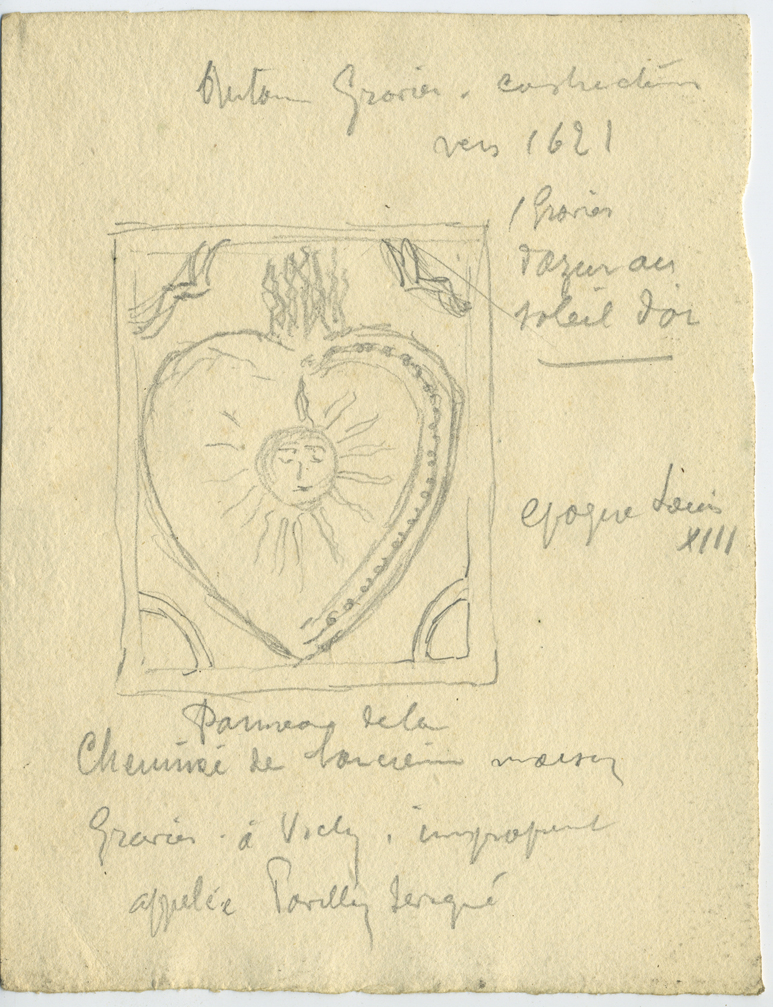 Antoine Gravier. constructeur
vers 1621
/ Gravier
d'azur au
soleil d'or
epoque Louis
XIII
Panneau de la
Cheminée de l'ancienne maison
Gravier à Vichy, impropent
appelée Pavillon Sévigné